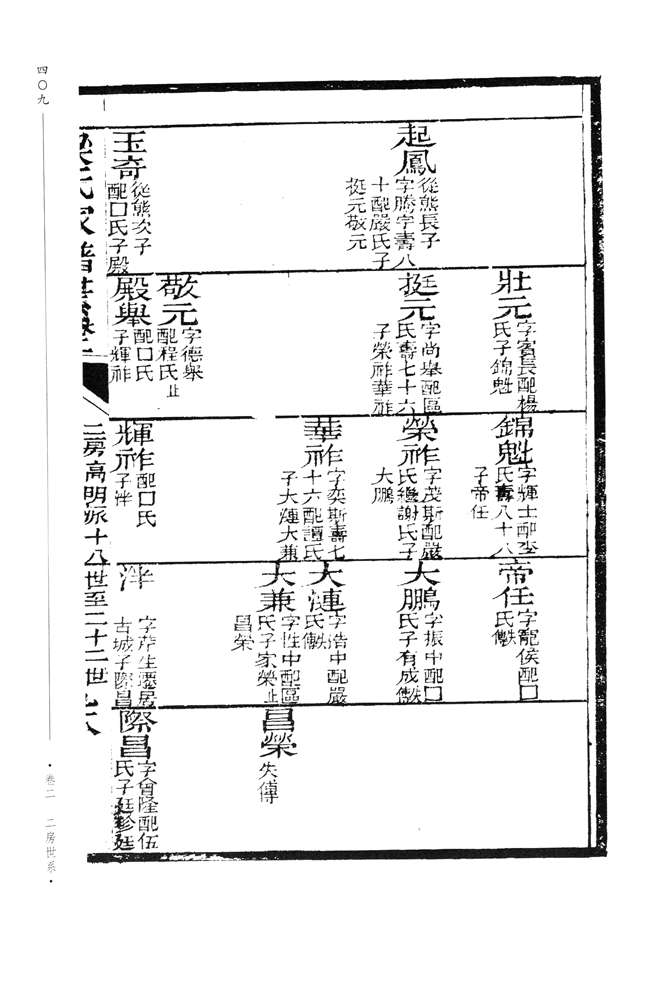 起鳳
從熊長子
字騰宇壽八
十配嚴氏子
挺元敬元
玉奇
從熊次子
配口氏子殿
壯元
字賓長配楊
氏子錦魁
挺元
字尚舉配區
氏壽七十六
子榮祚華祚
敬元
字德舉
配程氏止
殿舉
配口氏
子輝祚
錦魁
字輝士配李
氏壽八十八
子帝任
榮祚
字茂斯配嚴
氏繼謝氏子
大鵬
華祚
字奕斯壽七
十六配譚氏
子大漣大兼
輝祚
配口氏
子泮
帝任
字寵侯配口
氏
大鵬
字振中配口
氏子有成
大漣
字浩中配嚴
氏
大兼
字性中配區
氏子家榮止
昌榮
泮
字芹生遷居
古城子際昌
昌榮
失傳
際昌
字會隆配伍
氏子廷珍廷
氏家譜
二房高明派十八世至二十二世
四〇九
·卷二 二房世系·